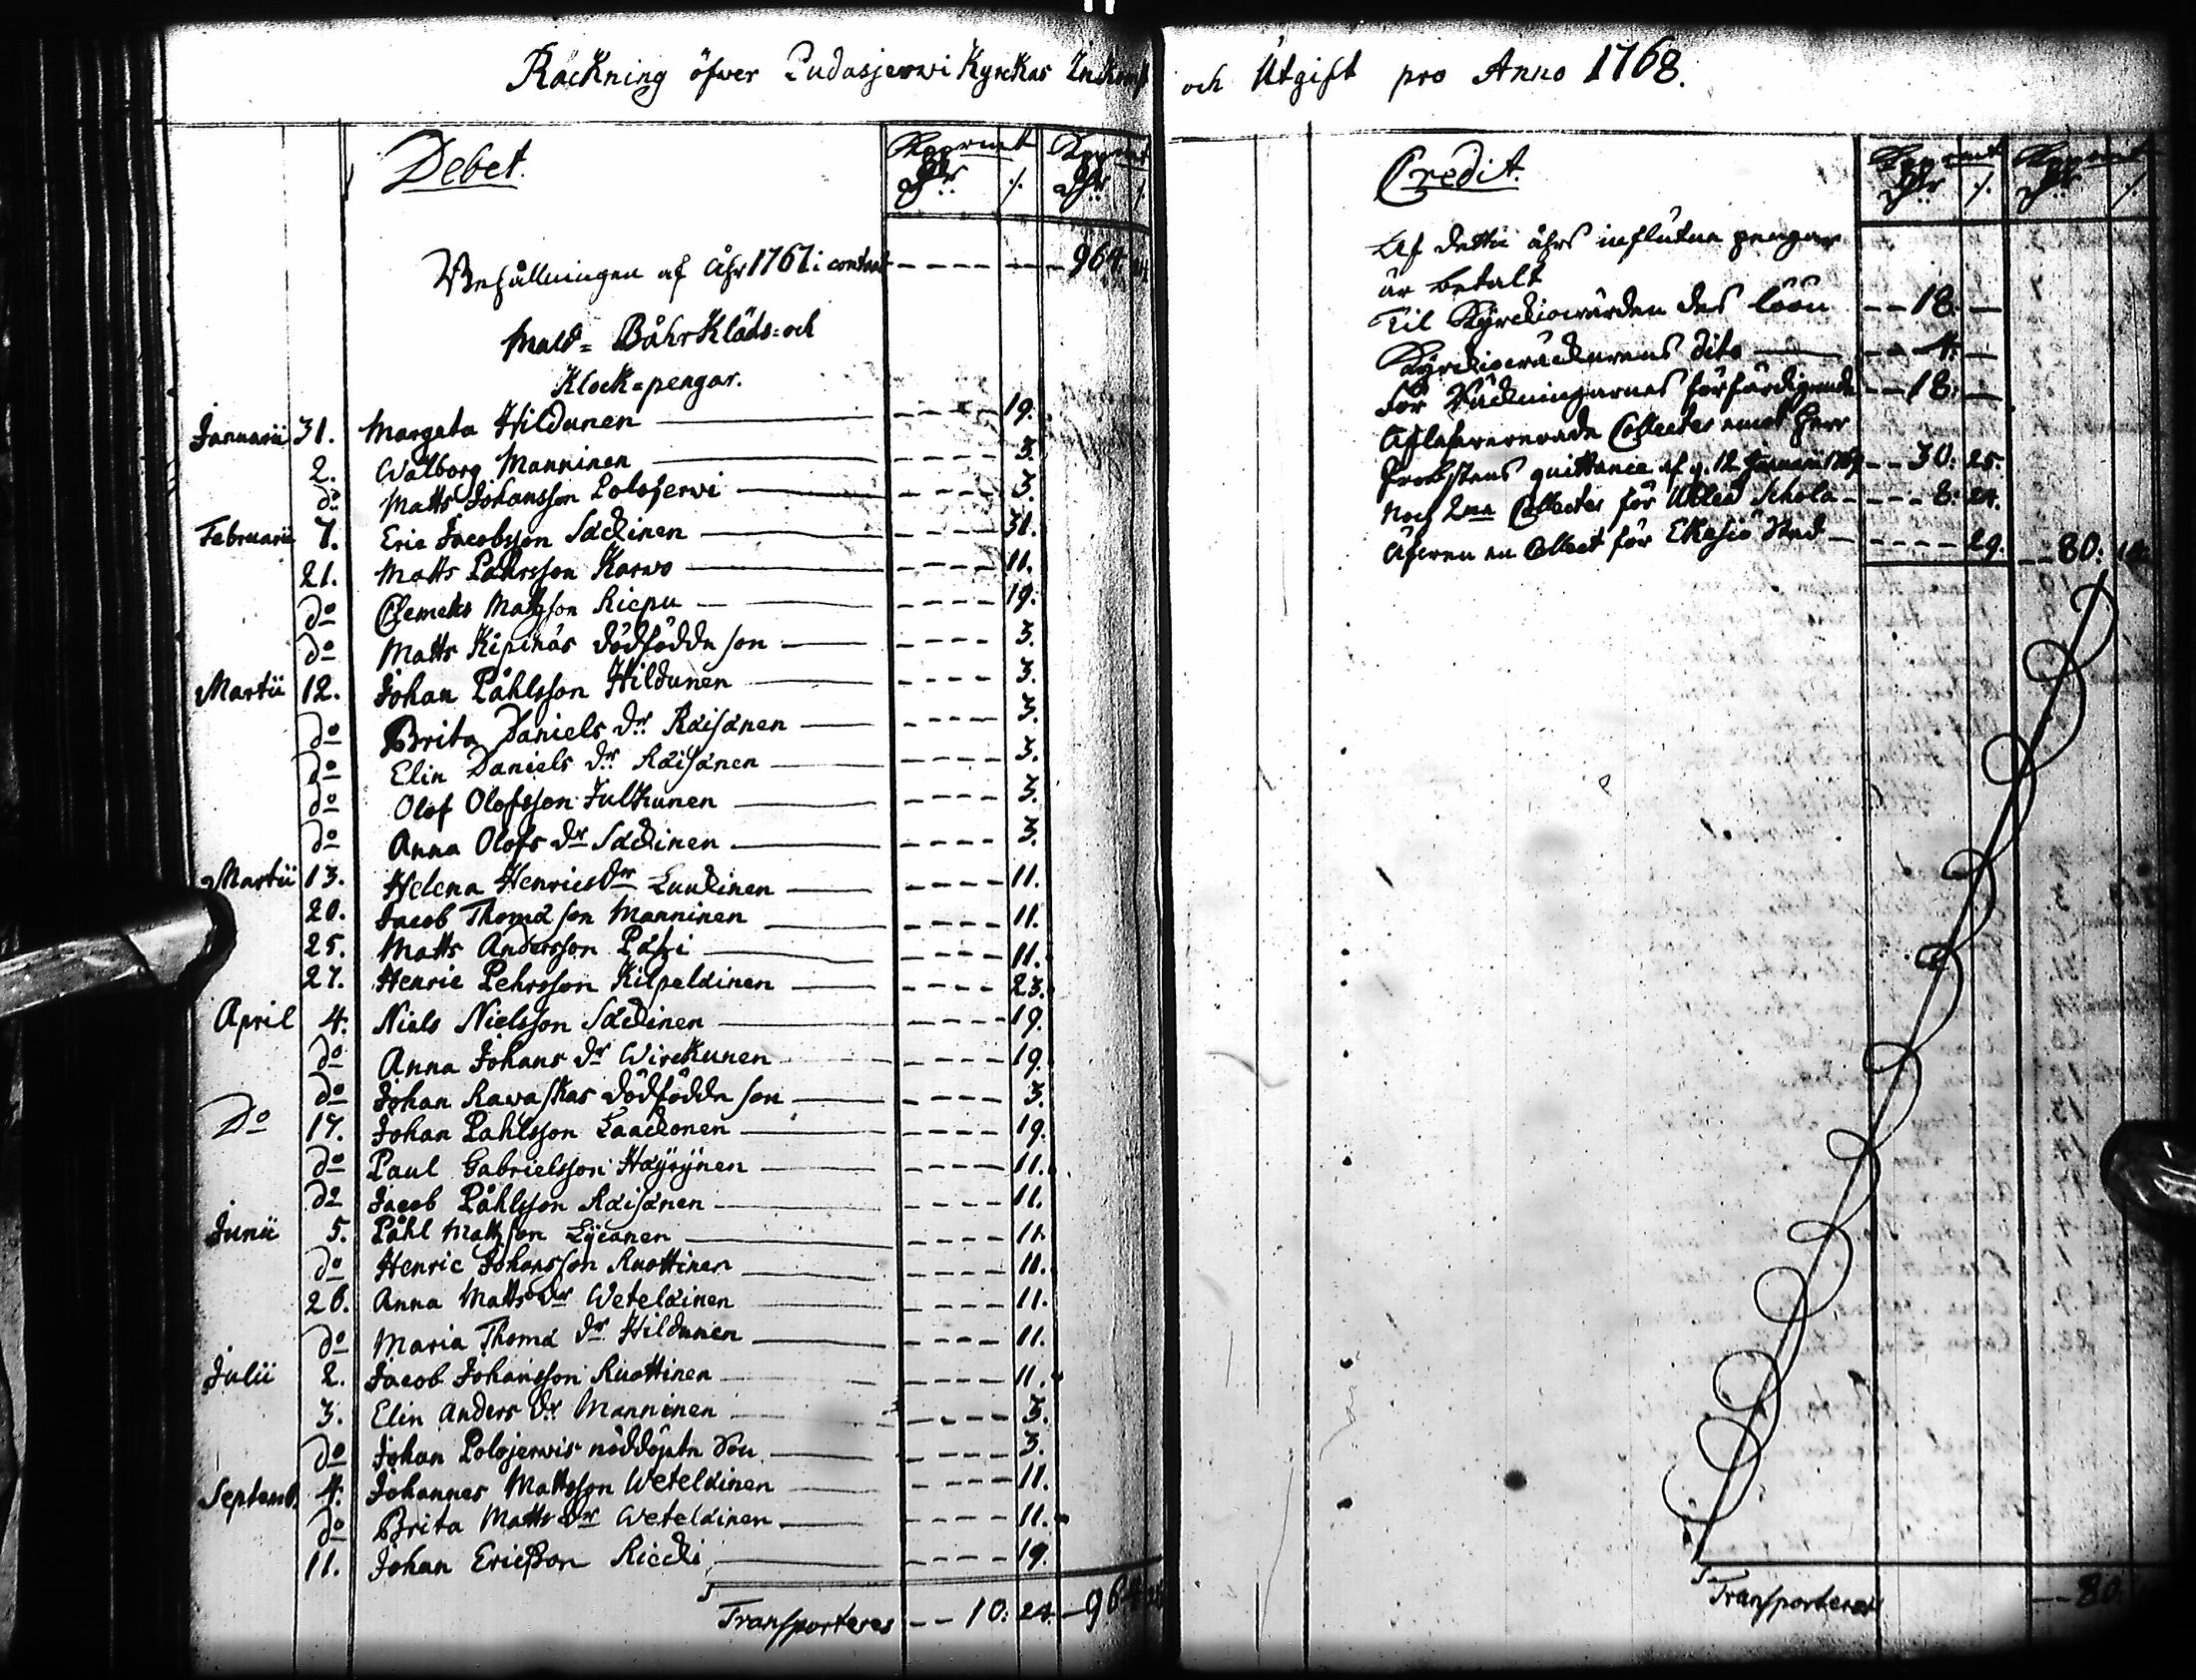 Räckning öfwer Pudasjerwi Kyrckas Inkomst och Utgift pro Anno 1768.
Debet.
Kopp mt Kopp mt
Dlr ./. Dlr ./.
Behållningen af åhr 1767 i contant 964.
Muld= Båhr Kläds= och
Klock=pengar.
Januarii 31. Margeta Hildunen 19.
2. Walborg Manninen 3.
do Matts Johansson Polojerwi 3.
Februarii 7. Eric Jacobsson Säckinen 31.
21. Matts Påhlsson Karwo 11.
do Clemets Matzson Riepu 19.
do Matts Kipinäs dödfödde son 3.
Martii 12. Johan Påhlsson Hildunen 3.
do Brita Daniels dr Räisänen 3.
do Elin Daniels dr Räisänen 3.
do Olof Olofsson Julkunen 3.
do Anna Olofs dr Säckinen 3.
Martii 13. Helena Henrics dr Luuckinen 11.
20. Jacob Thomä son Manninen 11.
25. Matts Andersson Pätzi 11.
27. Henric Pehrsson Kilpeläinen 23.
April 4. Niels Nielsson Säckinen 19.
do Anna Johans dr Wirckunen 19.
do Johan Rawaskas dödfödde son 3.
Do 17. Johan Pahlsson Laackonen 19.
do Paul Gabrielsson Häyrynen 11.
do Jacob Påhlsson Räisänen 11.
Junii 5. Påhl Mattsson Lycanen 11.
do Henric Johansson Ruottinen 11.
26. Anna Matts dr Weteläinen 11.
do Maria Thomä dr Hildunen 11.
Julii 2. Jacob Johansson Ruottinen 11.
3. Elin Anders dr Manninen 3.
do Johan Polojerwis nöddöpte Son 3.
Septemb. 4. Johannes Mattsson Weteläinen 11.
do Brita Matts dr Weteläinen 11.
11. Johan Ericsson Riecki 19.
Transporteres 10. 24. 964
Credit.
Kopp mt Kopp mt
Dlr ./. Dlr ./.
Af dette åhrs influtne pengar
är betalt
Til Kyrckiowärden des löön 18.
Kyrckiowäcktarens dito 4.
För Räckningarnes förfärdigande 18.
Aflefwererade Collecter emot Herr
Probstens quittance af d. 12 Januarii 30. 25.
Noch 2ne Collecter för Uhleå Schola 8. 24.
Äfwen en Collect för Ekesiö Stad 29. 80. 14.
Transporteres 80.